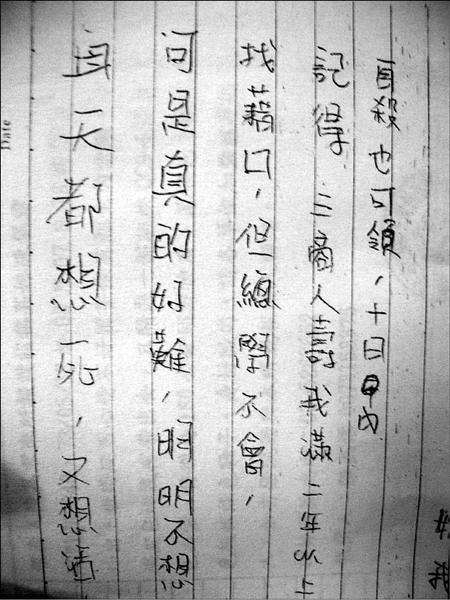 Date
每天都想死，又想活
可是真的好難，明明不想
找藉口，但總學不會，
記得 三商人壽我滿二年以上
自殺也可領，十日內